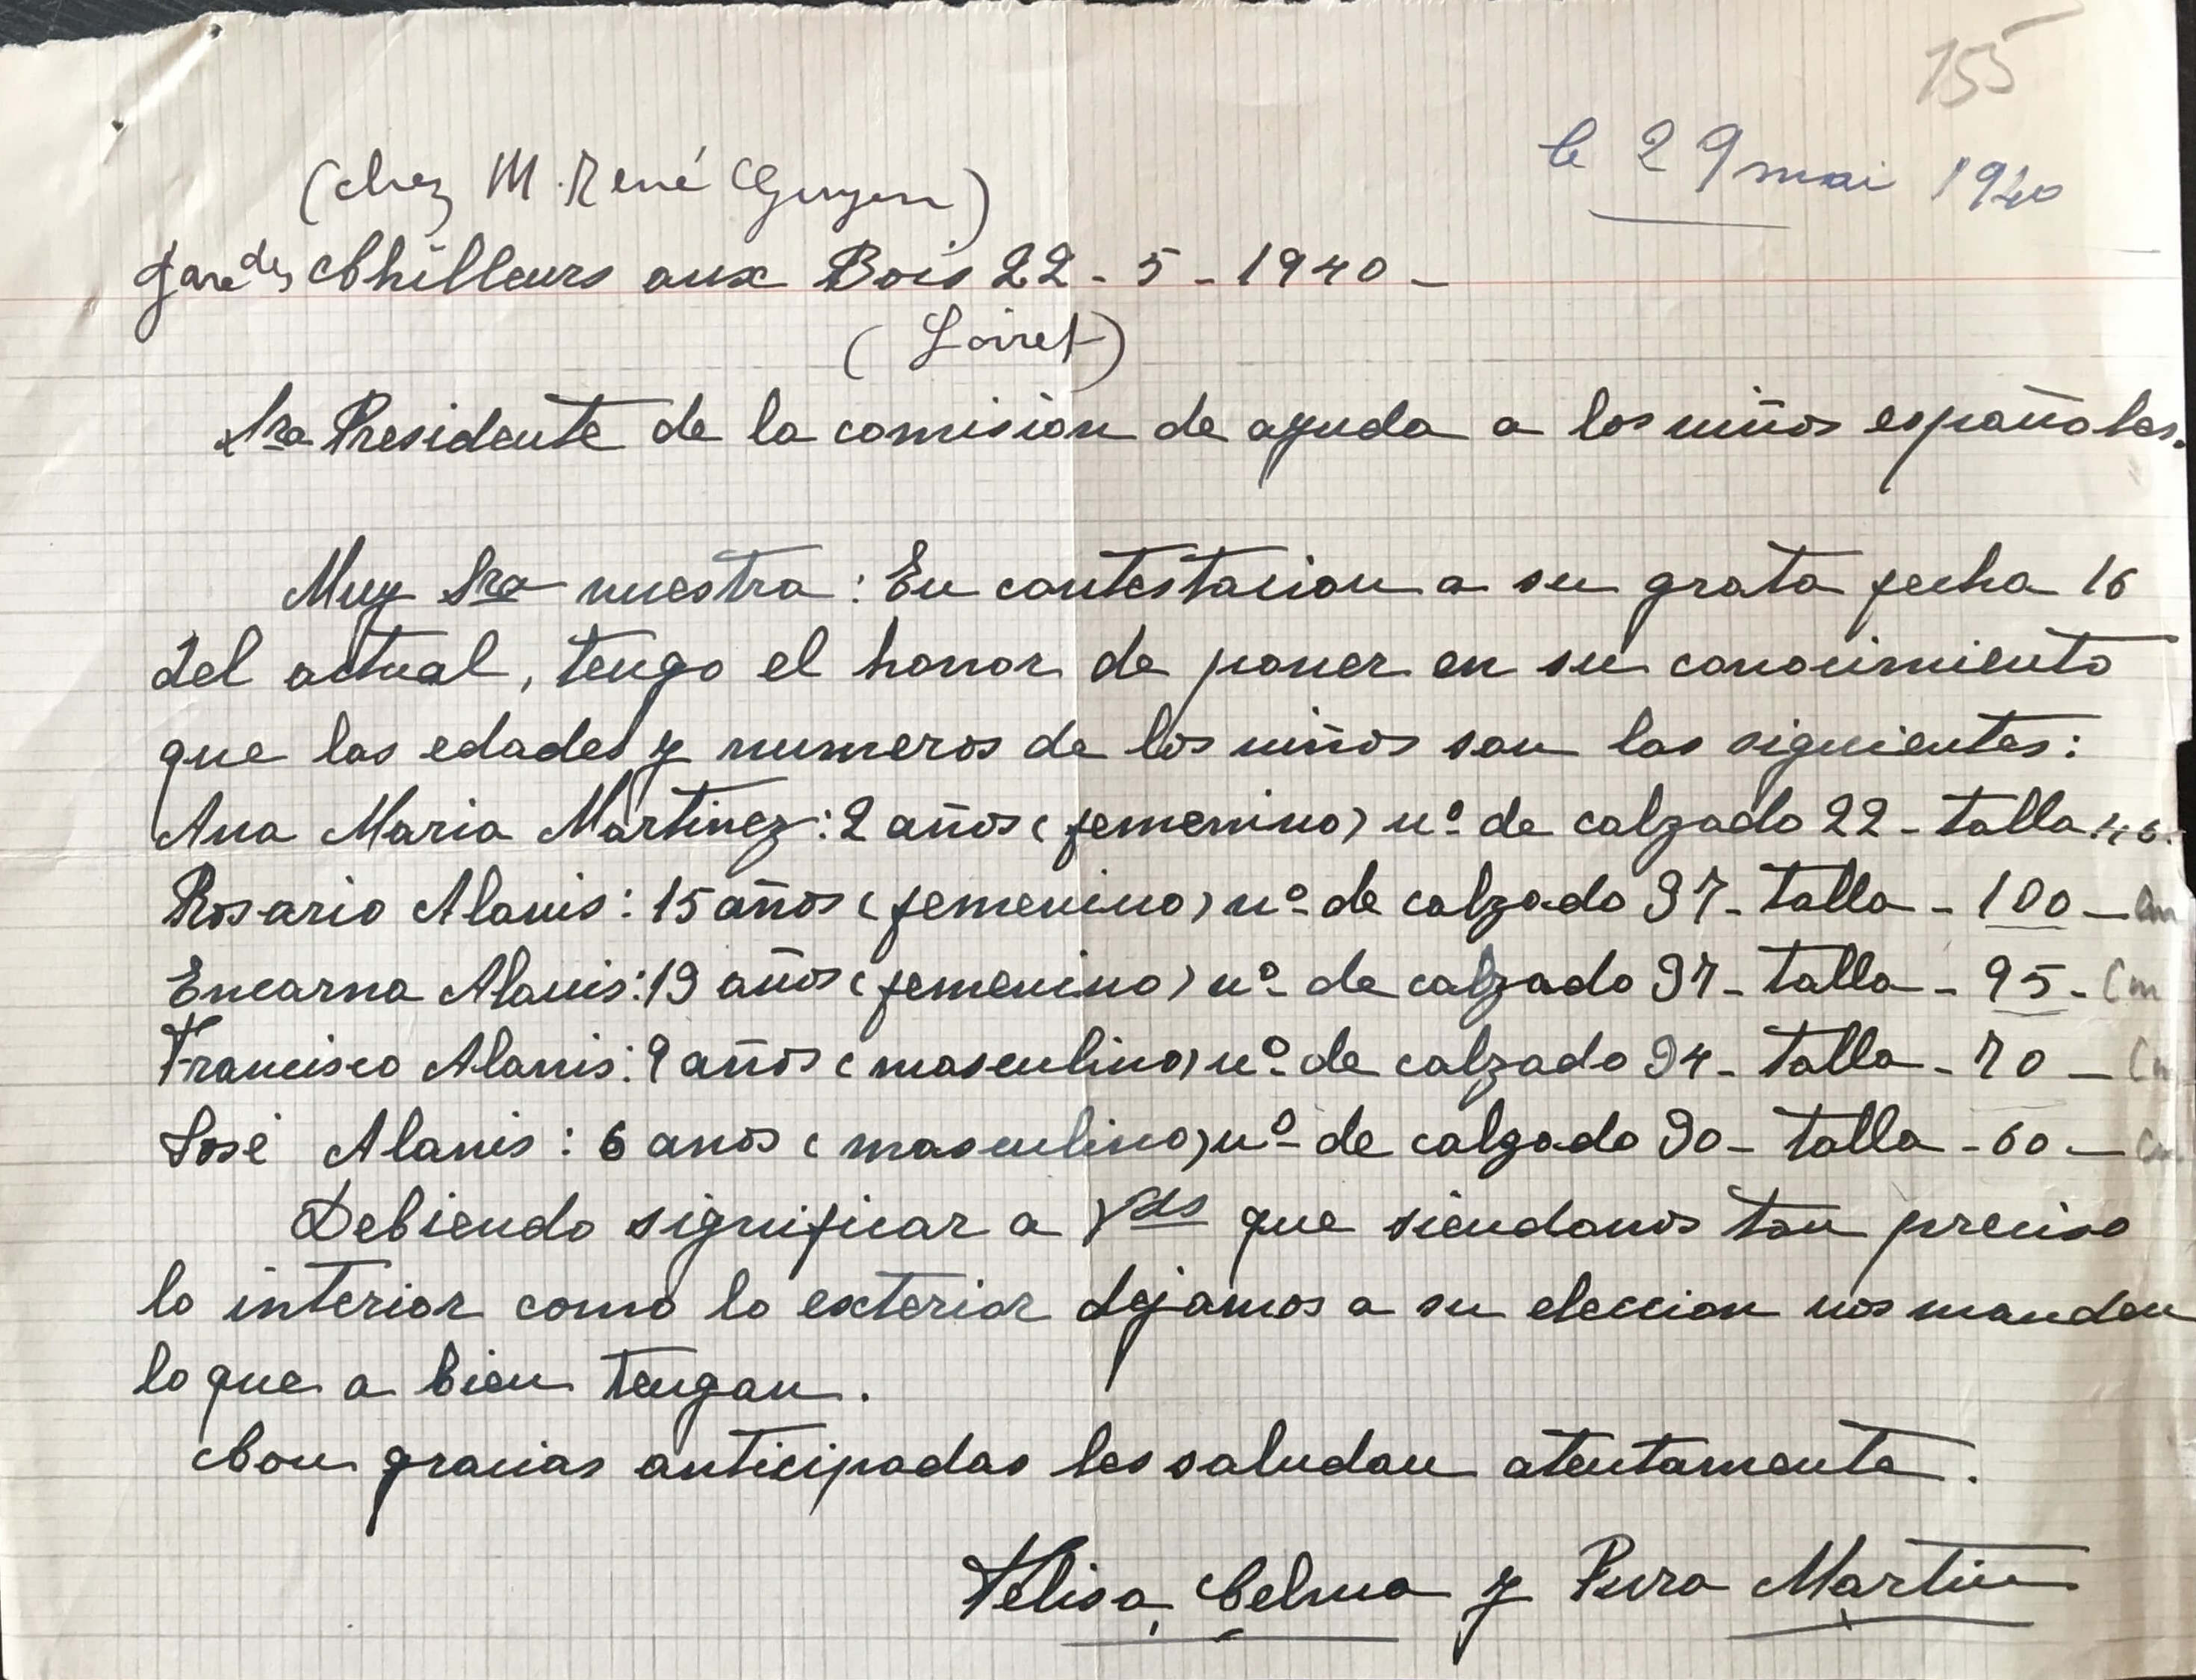 155
le 29 mai 1940
(chez M. René Guyon)
gare des Chilleurs aux Bois 22 - 5 - 1940 -
(Loiret)
Sra Presidente de la comision de ayuda a los niños españoles.
Muy Sra nuestra: En contestacion a su grata fecha 16
del actual, tengo el honor de poner en su conocimiento
que las edades y numeros de los niños son los siguientes:
Ana Maria Martinez: 2 años (femenino) nº de calzado 22 - talla 46.
Rosario Alanis: 15 años (femenino) nº de calzado 37 - talla - 100 - cm
Encarna Alanis: 13 años (femenino) nº de calzado 37 - talla - 95 - Cm
Francisco Alanis: 9 años (masculino) nº de calzado 34 - talla - 70 - Cm
José Alanis: 6 anos (masculino) nº de calzado 30 - talla - 60 - Cm
Debiendo significar a Vds que siendonos tan preciso
lo interior como lo exterior dejamos a su eleccion nos manden
lo que a bien tengan.
Con gracias anticipadas les saludan atentamente.
Felisa Celma y Pura Martin